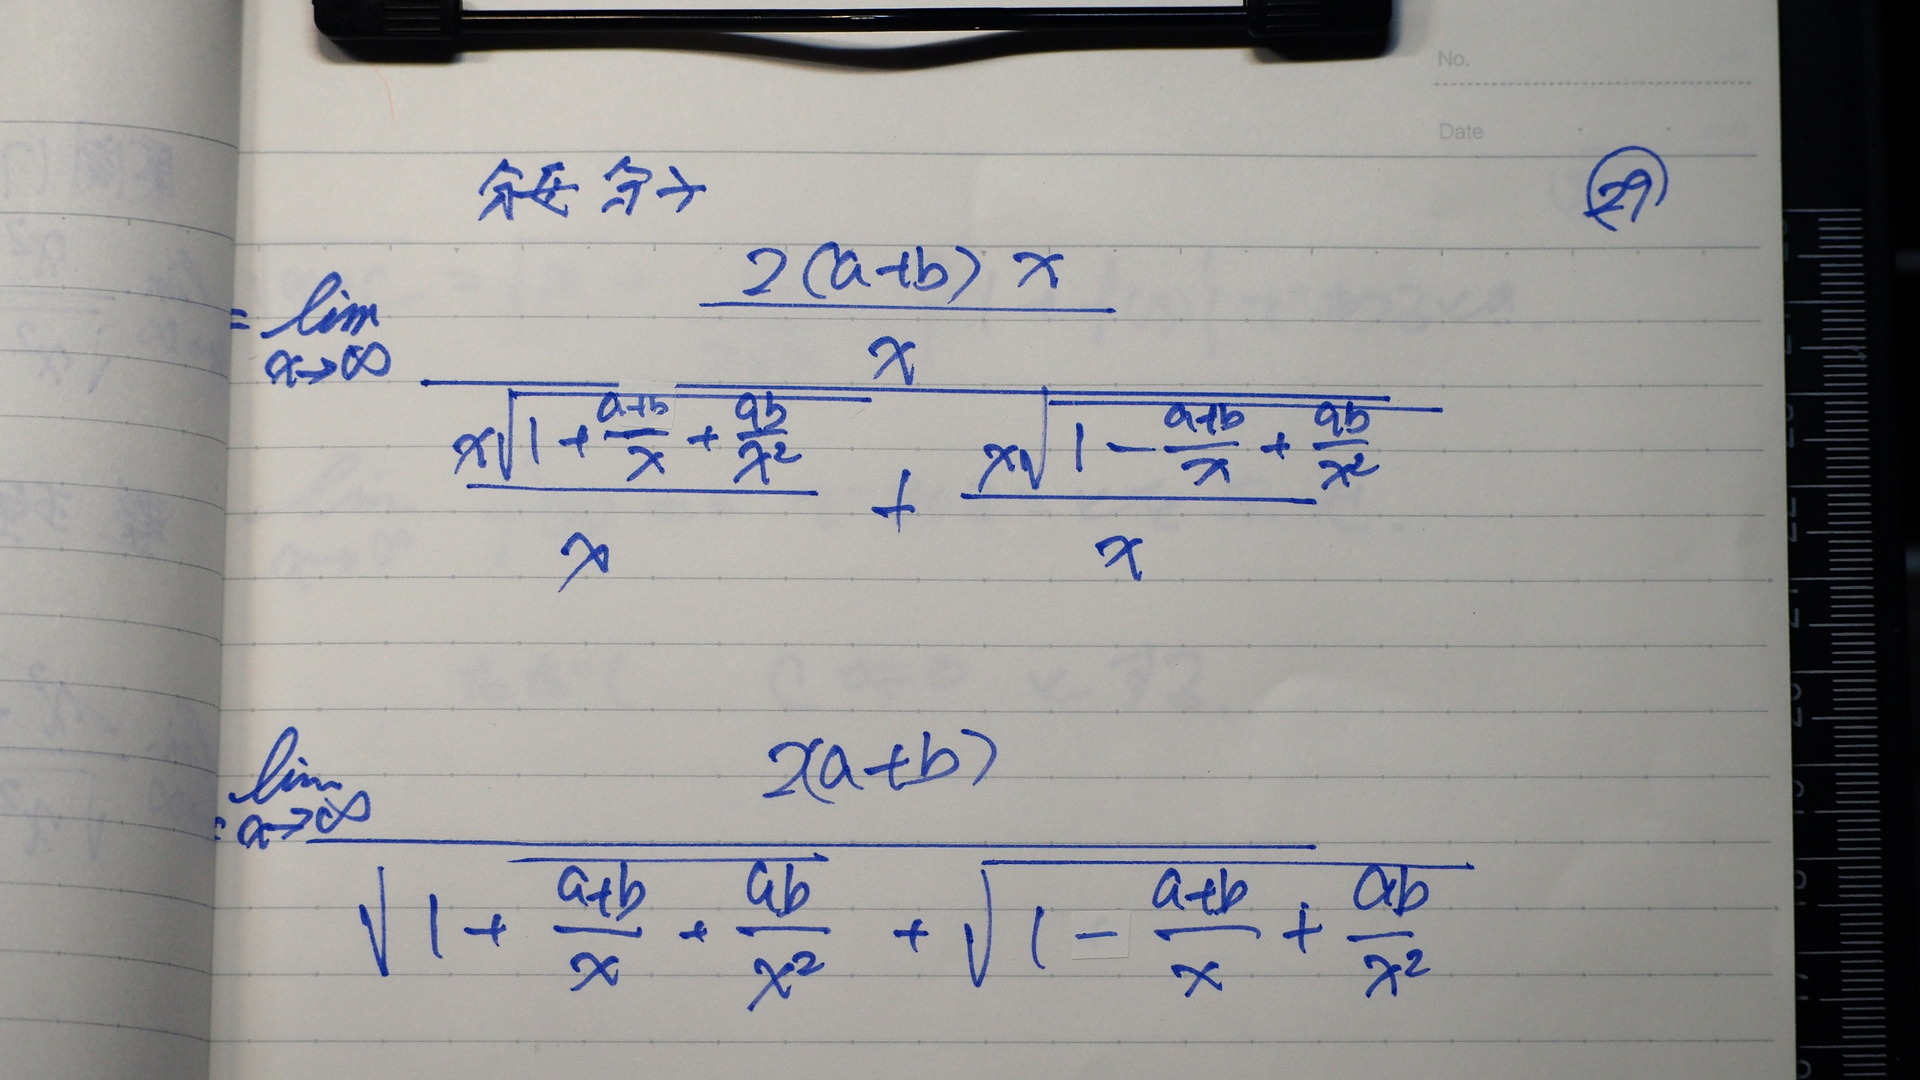 No.
Date
分母 分子
㉙
= lim x→∞ (2(a+b)x / x) / (x√(1 + (a+b)/x + ab/x²) / x + x√(1 − (a+b)/x + ab/x²) / x)
= lim x→∞ 2(a+b) / (√(1 + (a+b)/x + ab/x²) + √(1 − (a+b)/x + ab/x²))